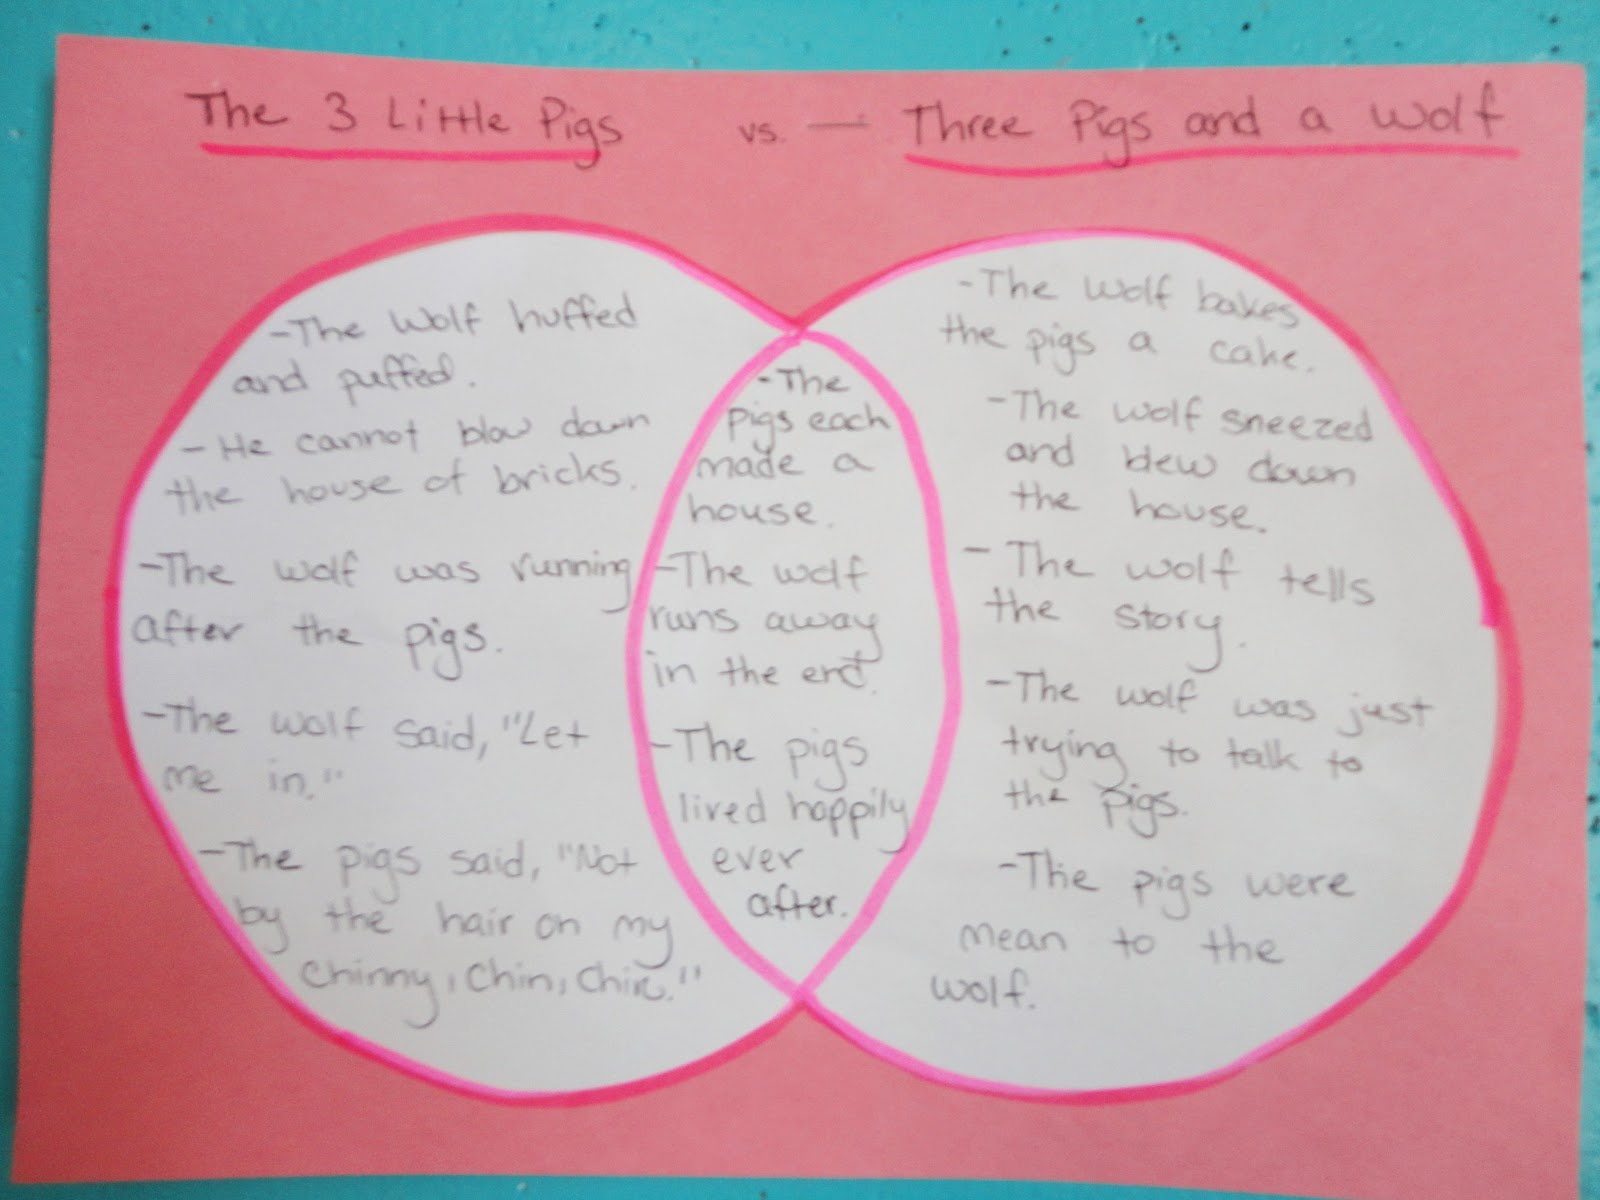 The 3 Little Pigs vs. — Three Pigs and a Wolf
-The Wolf huffed
and puffed.
- He cannot blow down
the house of bricks.
-The wolf was running
after the pigs.
-The wolf said, "Let
me in."
-The pigs said, "Not
by the hair on my
Chinny, Chin, Chin."
-The
pigs each
made a
house.
-The wolf
runs away
in the end.
-The pigs
lived happily
ever
after.
-The Wolf bakes
the pigs a cake.
-The wolf sneezed
and blew down
the house.
- The wolf tells
the story.
-The wolf was just
trying to talk to
the pigs.
-The pigs were
mean to the
wolf.